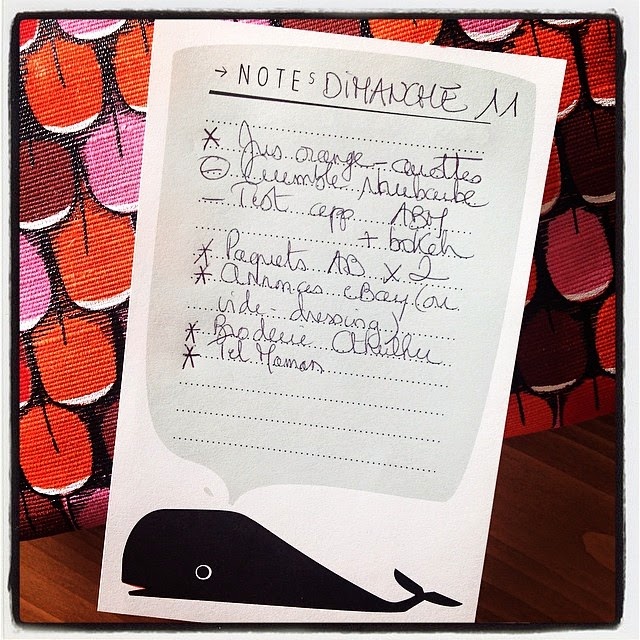 → NOTES DIMANCHE 11
* Jus orange - carottes
Crumble rhubarbe
– Test app ABM
+ bokeh
* Paquets AB x 2
* Annonces eBay (ou
vide-dressing)
* Broderie Cthulhu
* Tel Maman